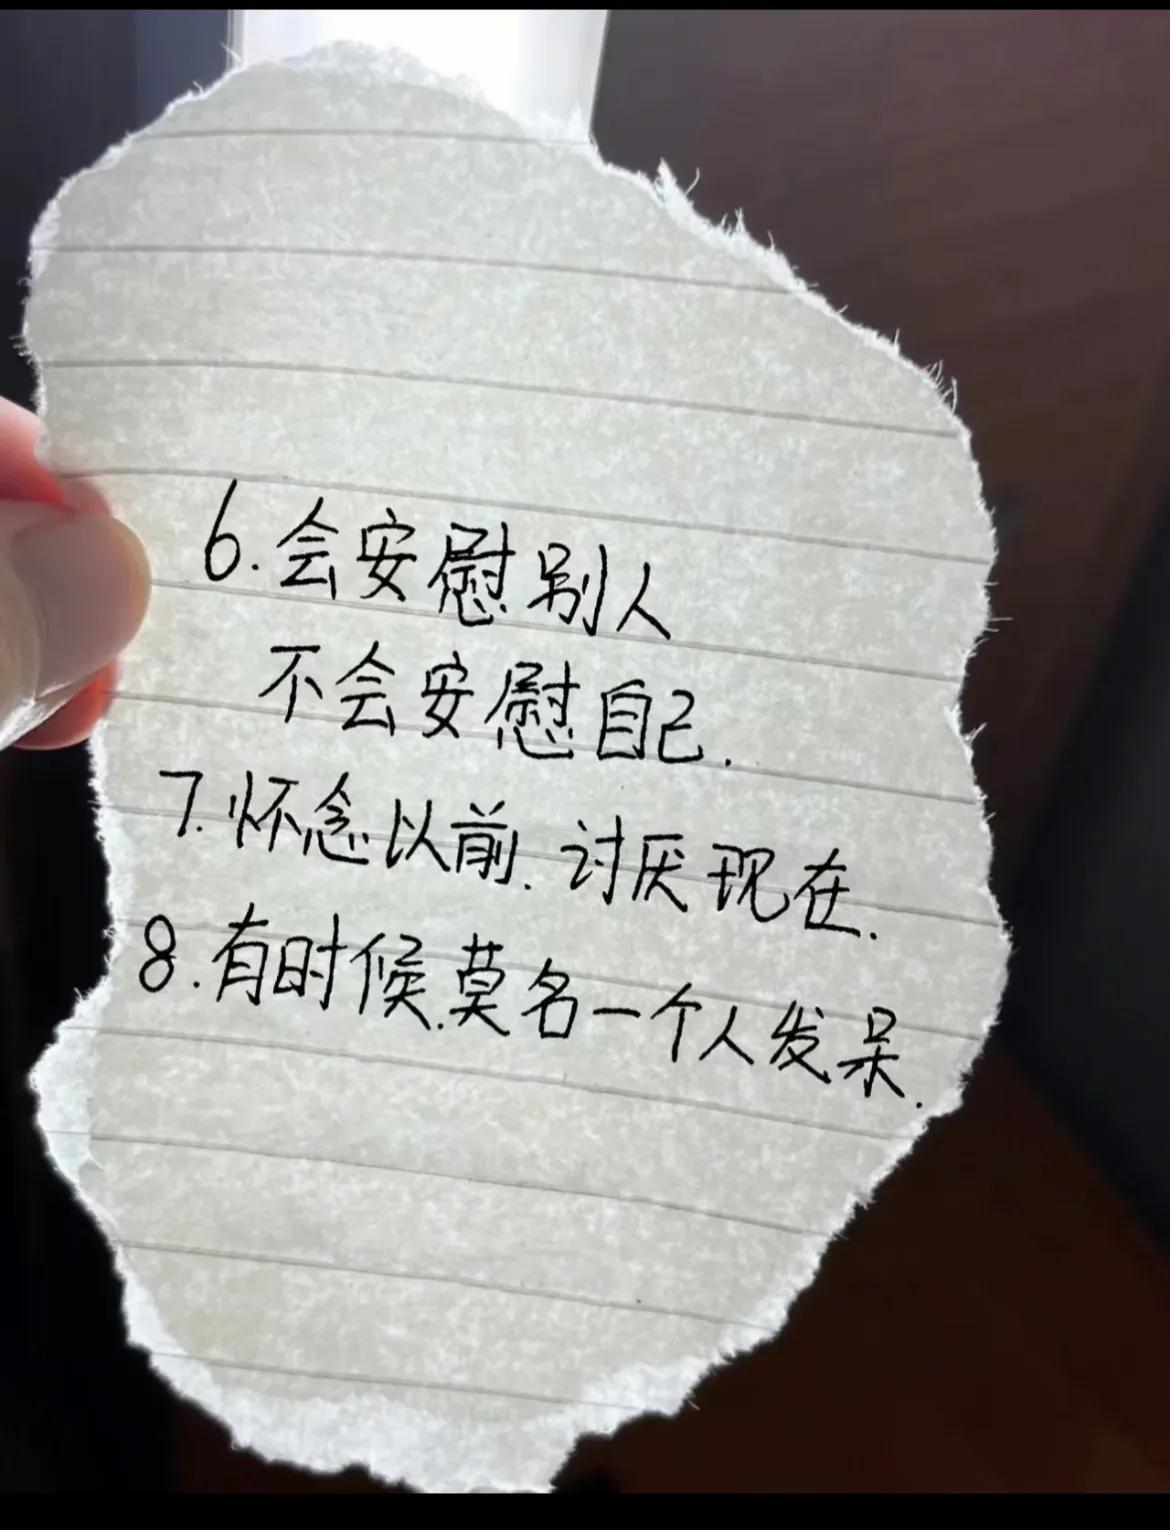 6.会安慰别人
不会安慰自己.
7.怀念以前.讨厌现在.
8.有时候.莫名一个人发呆.